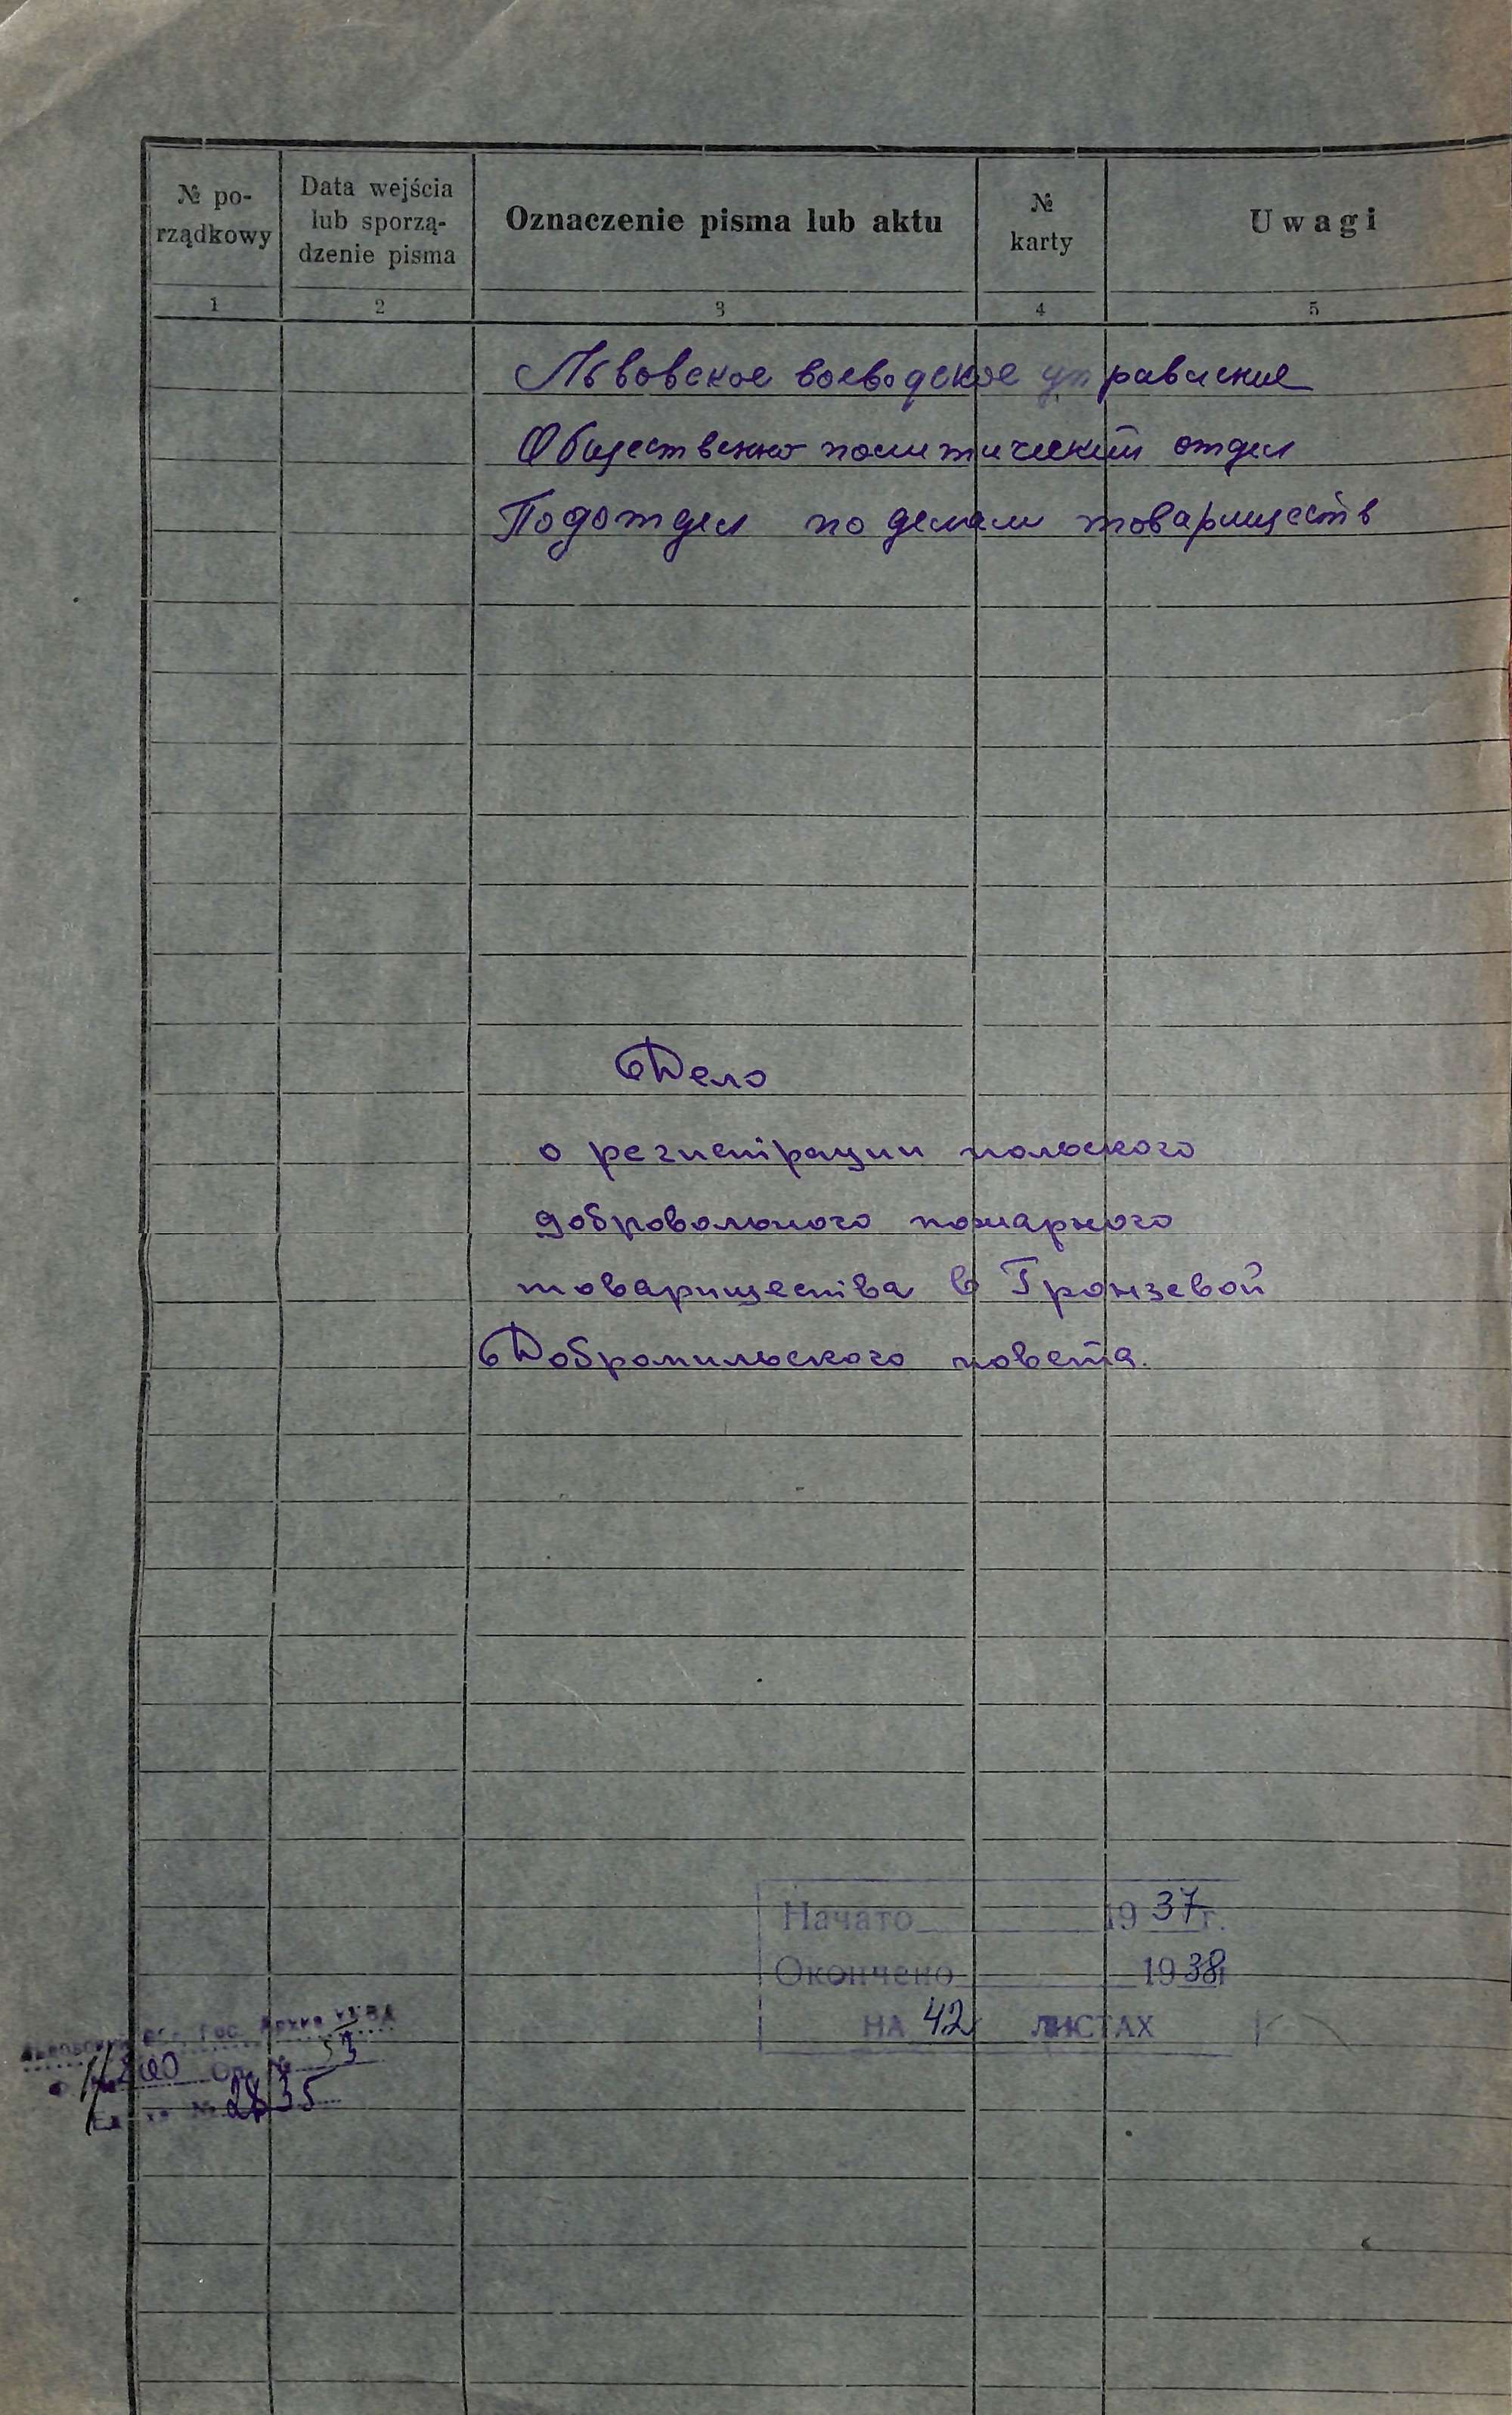 № po-
rządkowy
Data wejścia
lub sporzą-
dzenie pisma
Oznaczenie pisma lub aktu
№
karty
Uwagi
1
2
3
4
5
Львовское воеводское управление
Общественно политический отдел
Подотдел по делам товариществ
Дело
о регистрации польского
добровольного пожарного
товарищества в Гронзевой
Добромильского повета.
Начато 1937 г.
Окончено 1938
НА 42 ЛИСТАХ
Гос.
Оп. № 53
№ 2835